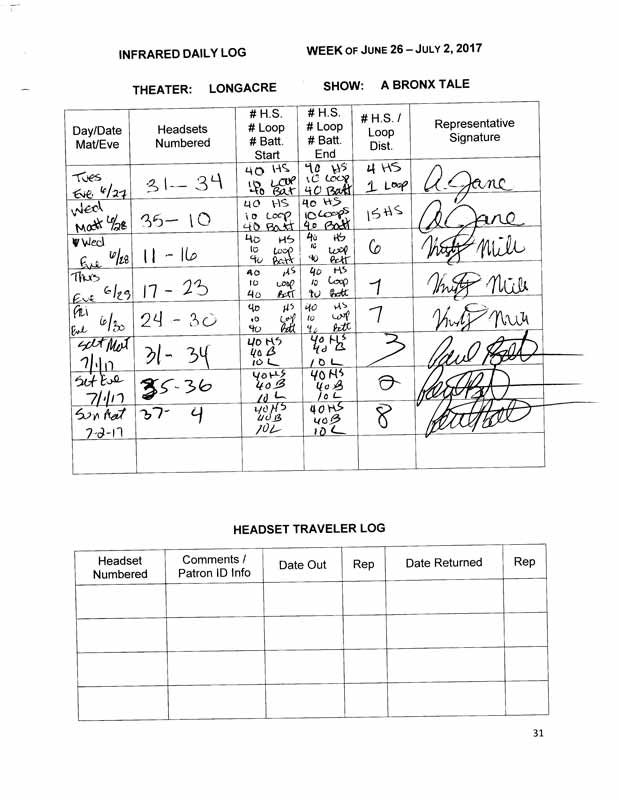 INFRARED DAILY LOG WEEK OF JUNE 26 – JULY 2, 2017
THEATER: LONGACRE SHOW: A BRONX TALE
Day/Date Mat/Eve Headsets Numbered # H.S. # Loop # Batt. Start # H.S. # Loop # Batt. End # H.S. / Loop Dist. Representative Signature
Tues Eve 6/27 31 – 34 40 HS 10 Loop 40 Batt 40 HS 10 Loop 40 Batt 4 HS 1 Loop A. Jane
Wed Matt 6/28 35 – 10 40 HS 10 Loop 40 Batt 40 HS 10 Loops 40 Batt 15 HS A. Jane
Wed Eve 6/28 11 – 16 40 HS 10 Loop 40 Batt 40 HS 10 Loop 40 Batt 6
Thus Eve 6/29 17 – 23 40 HS 10 Loop 40 Batt 40 HS 10 Loop 40 Batt 7
Fri Eve 6/30 24 – 30 40 HS 10 Loop 40 Batt 40 HS 10 Loop 40 Batt 7
Sat Mat 7/1/17 31 – 34 40 HS 40 B 10 L 40 HS 40 B 10 L 3
Sat Eve 7/1/17 35 - 36 40 HS 40 B 10 L 40 HS 40 B 10 L
Sun Mat 7-2-17 37 - 4 40 HS 40 B 10 L 40 HS 40 B 10 L 8
HEADSET TRAVELER LOG
Headset Numbered Comments / Patron ID Info Date Out Rep Date Returned Rep
31